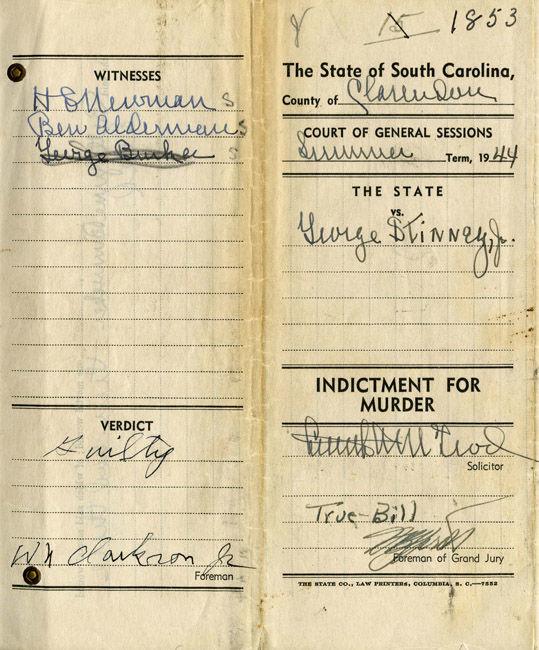 WITNESSES
H E Newman S
Ben Alderman S
George Burke S
VERDICT
Guilty
Wh Clarkson Jr
Foreman
15 1853
The State of South Carolina,
County of Clarendon
COURT OF GENERAL SESSIONS
Summer Term, 1944
THE STATE
vs.
George Stinney, Jr.
INDICTMENT FOR
MURDER
McLeod
Solicitor
True-Bill
Foreman of Grand Jury
THE STATE CO., LAW PRINTERS, COLUMBIA, S. C.—7552